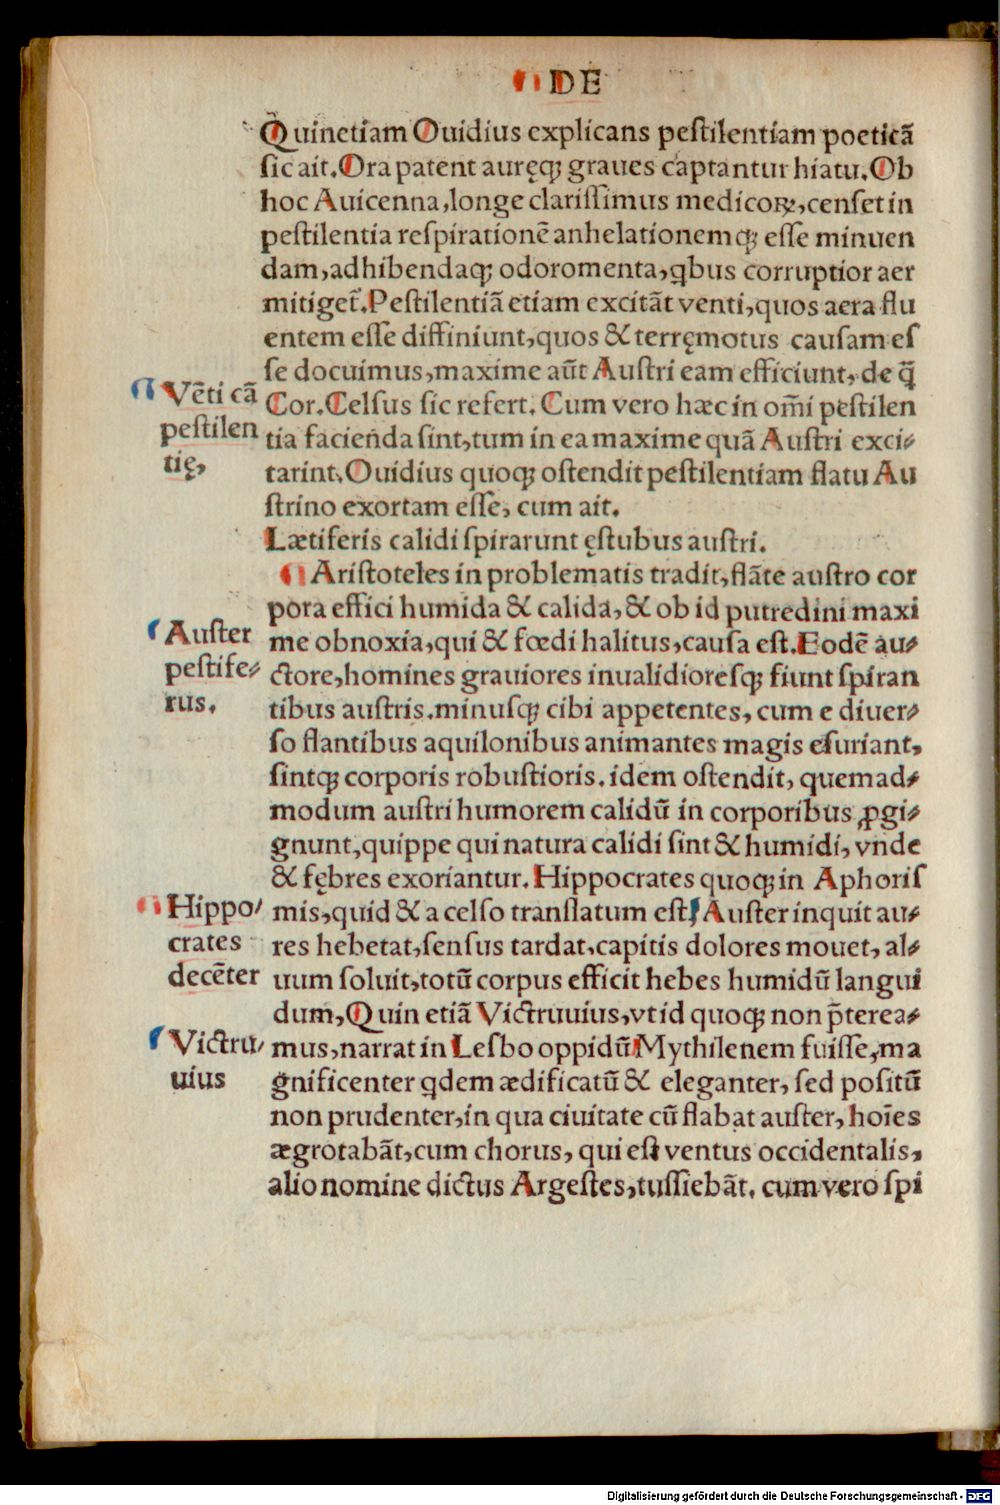 DE
Quinetiam Ouidius explicans peſtilentiam poeticã
ſic ait. Ora patent auręqꝫ graues captantur hiatu. Ob
hoc Auicenna, longe clariſſimus medicoꝝ, cenſet in
peſtilentia reſpirationẽ anhelationemqꝫ eſſe minuen
dam, adhibendaqꝫ odoromenta, ꝗbus corruptior aer
mitiget̃. Peſtilentiã etiam excitãt venti, quos aera flu
entem eſſe diffiniunt, quos & terręmotus cauſam eſ
ſe docuimus, maxime aũt Auſtri eam efficiunt, de q̃
Cor. Celſus ſic refert. Cum vero hæc in om̃i peſtilen
tia facienda ſint, tum in ea maxime quã Auſtri exci⸗
tarint. Ouidius quoqꝫ oſtendit peſtilentiam flatu Au
ſtrino exortam eſſe, cum ait.
Lætiferis calidi ſpirarunt ęſtubus auſtri.
¶ Ariſtoteles in problematis tradit, flãte auſtro cor
pora effici humida & calida, & ob id putredini maxi
me obnoxia, qui & fœdi halitus, cauſa eſt. Eodẽ au⸗
ctore, homines grauiores inualidioreſqꝫ fiunt ſpiran
tibus auſtris. minuſqꝫ cibi appetentes, cum e diuer⸗
ſo flantibus aquilonibus animantes magis eſuriant,
ſintqꝫ corporis robuſtioris. idem oſtendit, quemad⸗
modum auſtri humorem calidũ in corporibus ꝓgi⸗
gnunt, quippe qui natura calidi ſint & humidi, vnde
& fębres exoriantur. Hippocrates quoqꝫ in Aphoriſ
mis, quid & a celſo translatum eſt. Auſter inquit au⸗
res hebetat, ſenſus tardat, capitis dolores mouet, al⸗
uum ſoluit, totũ corpus efficit hebes humidũ langui
dum, Quin etiã Victruuius, vt id quoqꝫ non p̃terea⸗
mus, narrat in Lesbo oppidũ Mythilenem fuiſſe, ma
gnificenter ꝗdem ædificatũ & eleganter, ſed poſitũ
non prudenter, in qua ciuitate cũ flabat auſter, hoĩes
ægrotabãt, cum chorus, qui eſt ventus occidentalis,
alio nomine dictus Argeſtes, tuſſiebãt. cum vero ſpi
Vẽti cã
peſtilen
tię,
Auſter
peſtife⸗
rus.
Hippo⸗
crates
decẽter
Victru⸗
uius
Digitalisierung gefördert durch die Deutsche Forschungsgemeinschaft - DFG